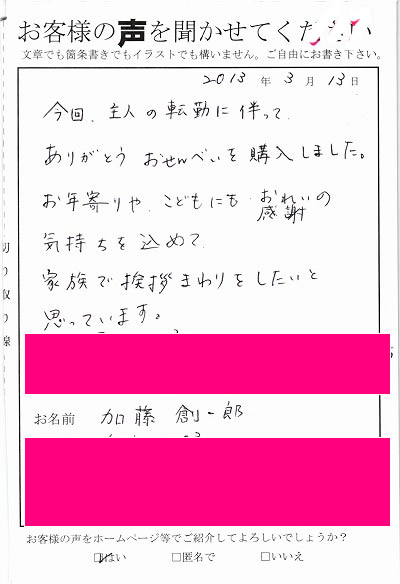 お客様の声を聞かせてください
文章でも箇条書きでもイラストでも構いません。ご自由にお書き下さい。
2013 年 3 月 13 日
今回、主人の転勤に伴って、
ありがとう おせんべいを購入しました。
お年寄りや、こどもにも おれいの
感謝
気持ちを込めて
家族で挨拶まわりをしたいと
思っています。
切り取り線
お名前 加藤 創一郎
お客様の声をホームページ等でご紹介してよろしいでしょうか?
☑はい □匿名で □いいえ